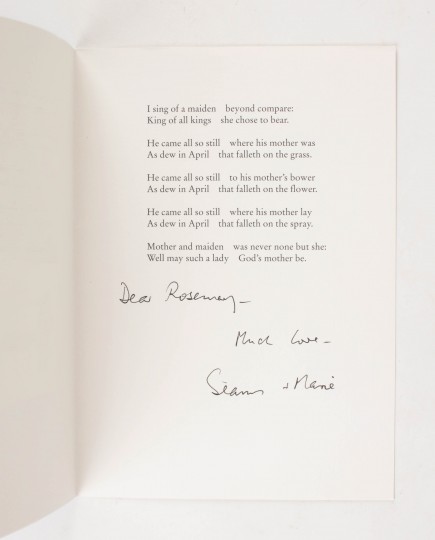 I sing of a maiden beyond compare:
King of all kings she chose to bear.
He came all so still where his mother was
As dew in April that falleth on the grass.
He came all so still to his mother's bower
As dew in April that falleth on the flower.
He came all so still where his mother lay
As dew in April that falleth on the spray.
Mother and maiden was never none but she:
Well may such a lady God's mother be.
Dear Rosemary –
Much love –
Seamus & Marie